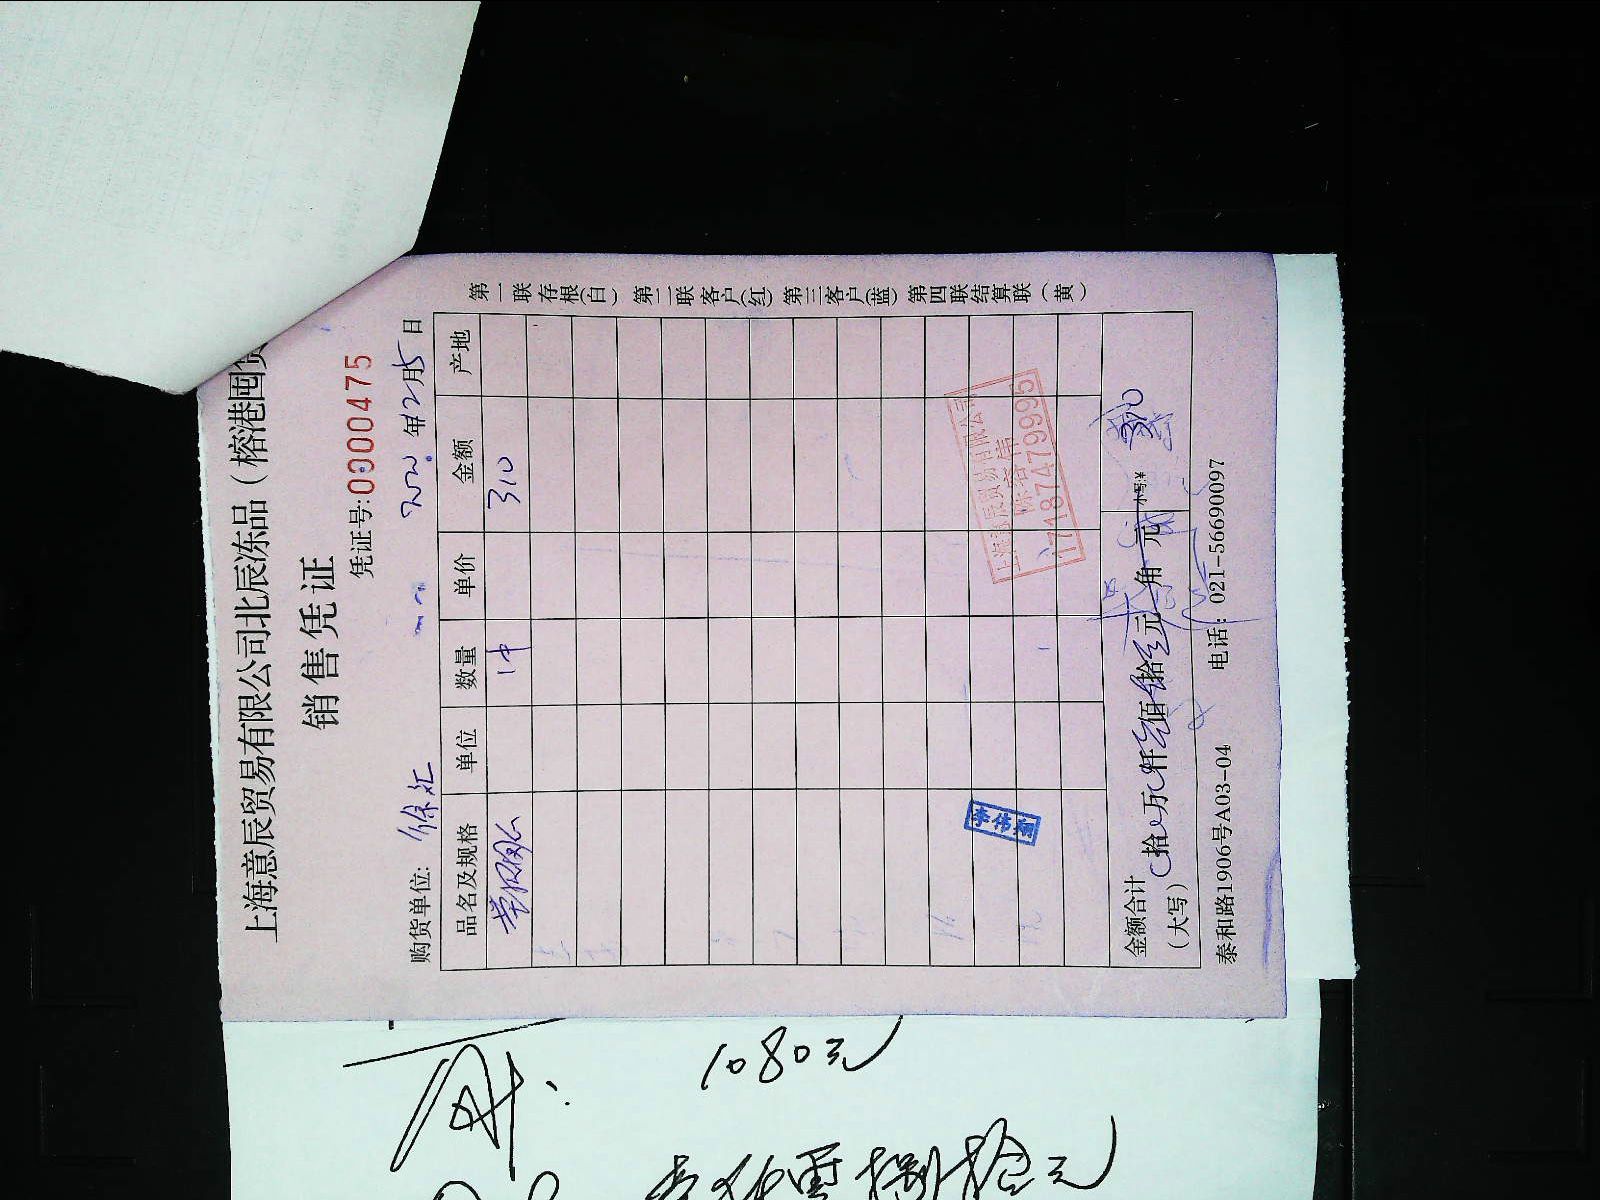 上海意辰贸易有限公司北辰冻品（榕港囤货
销售凭证
凭证号:0000475
购货单位: 徐汇 2020年2月5日
品名及规格 单位 数量 单价 金额 产地
1件 310
李伟翔
上海意辰贸易有限公司
17187479995
金额合计（大写） 拾 万 仟 叁佰 拾 元 角 元 小写:¥ 310
泰和路1906号A03-04 电话: 021-56690097
第一联存根(白) 第二联客户(红) 第三客户(蓝) 第四联结算联(黄)
1080元
壹仟零捌拾元